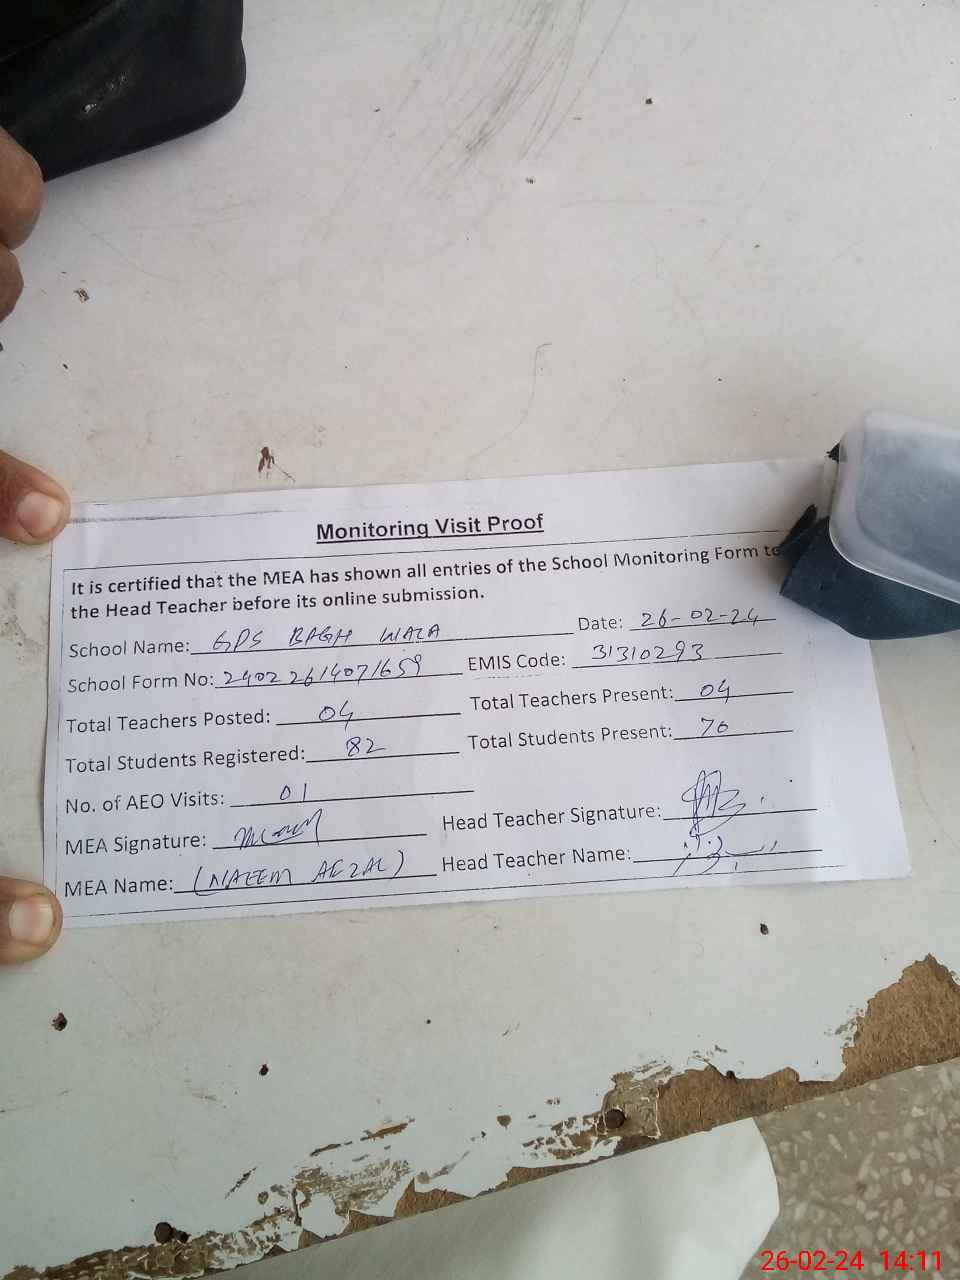 Monitoring Visit Proof
It is certified that the MEA has shown all entries of the School Monitoring Form to
the Head Teacher before its online submission.
School Name: GPS BAGH WALA Date: 26-02-24
School Form No: 24022614071659 EMIS Code: 31310293
Total Teachers Posted: 04 Total Teachers Present: 04
Total Students Registered: 82 Total Students Present: 70
No. of AEO Visits: 01
MEA Signature: Head Teacher Signature:
MEA Name: (NAEEM AFZAL) Head Teacher Name:
26-02-24 14:11